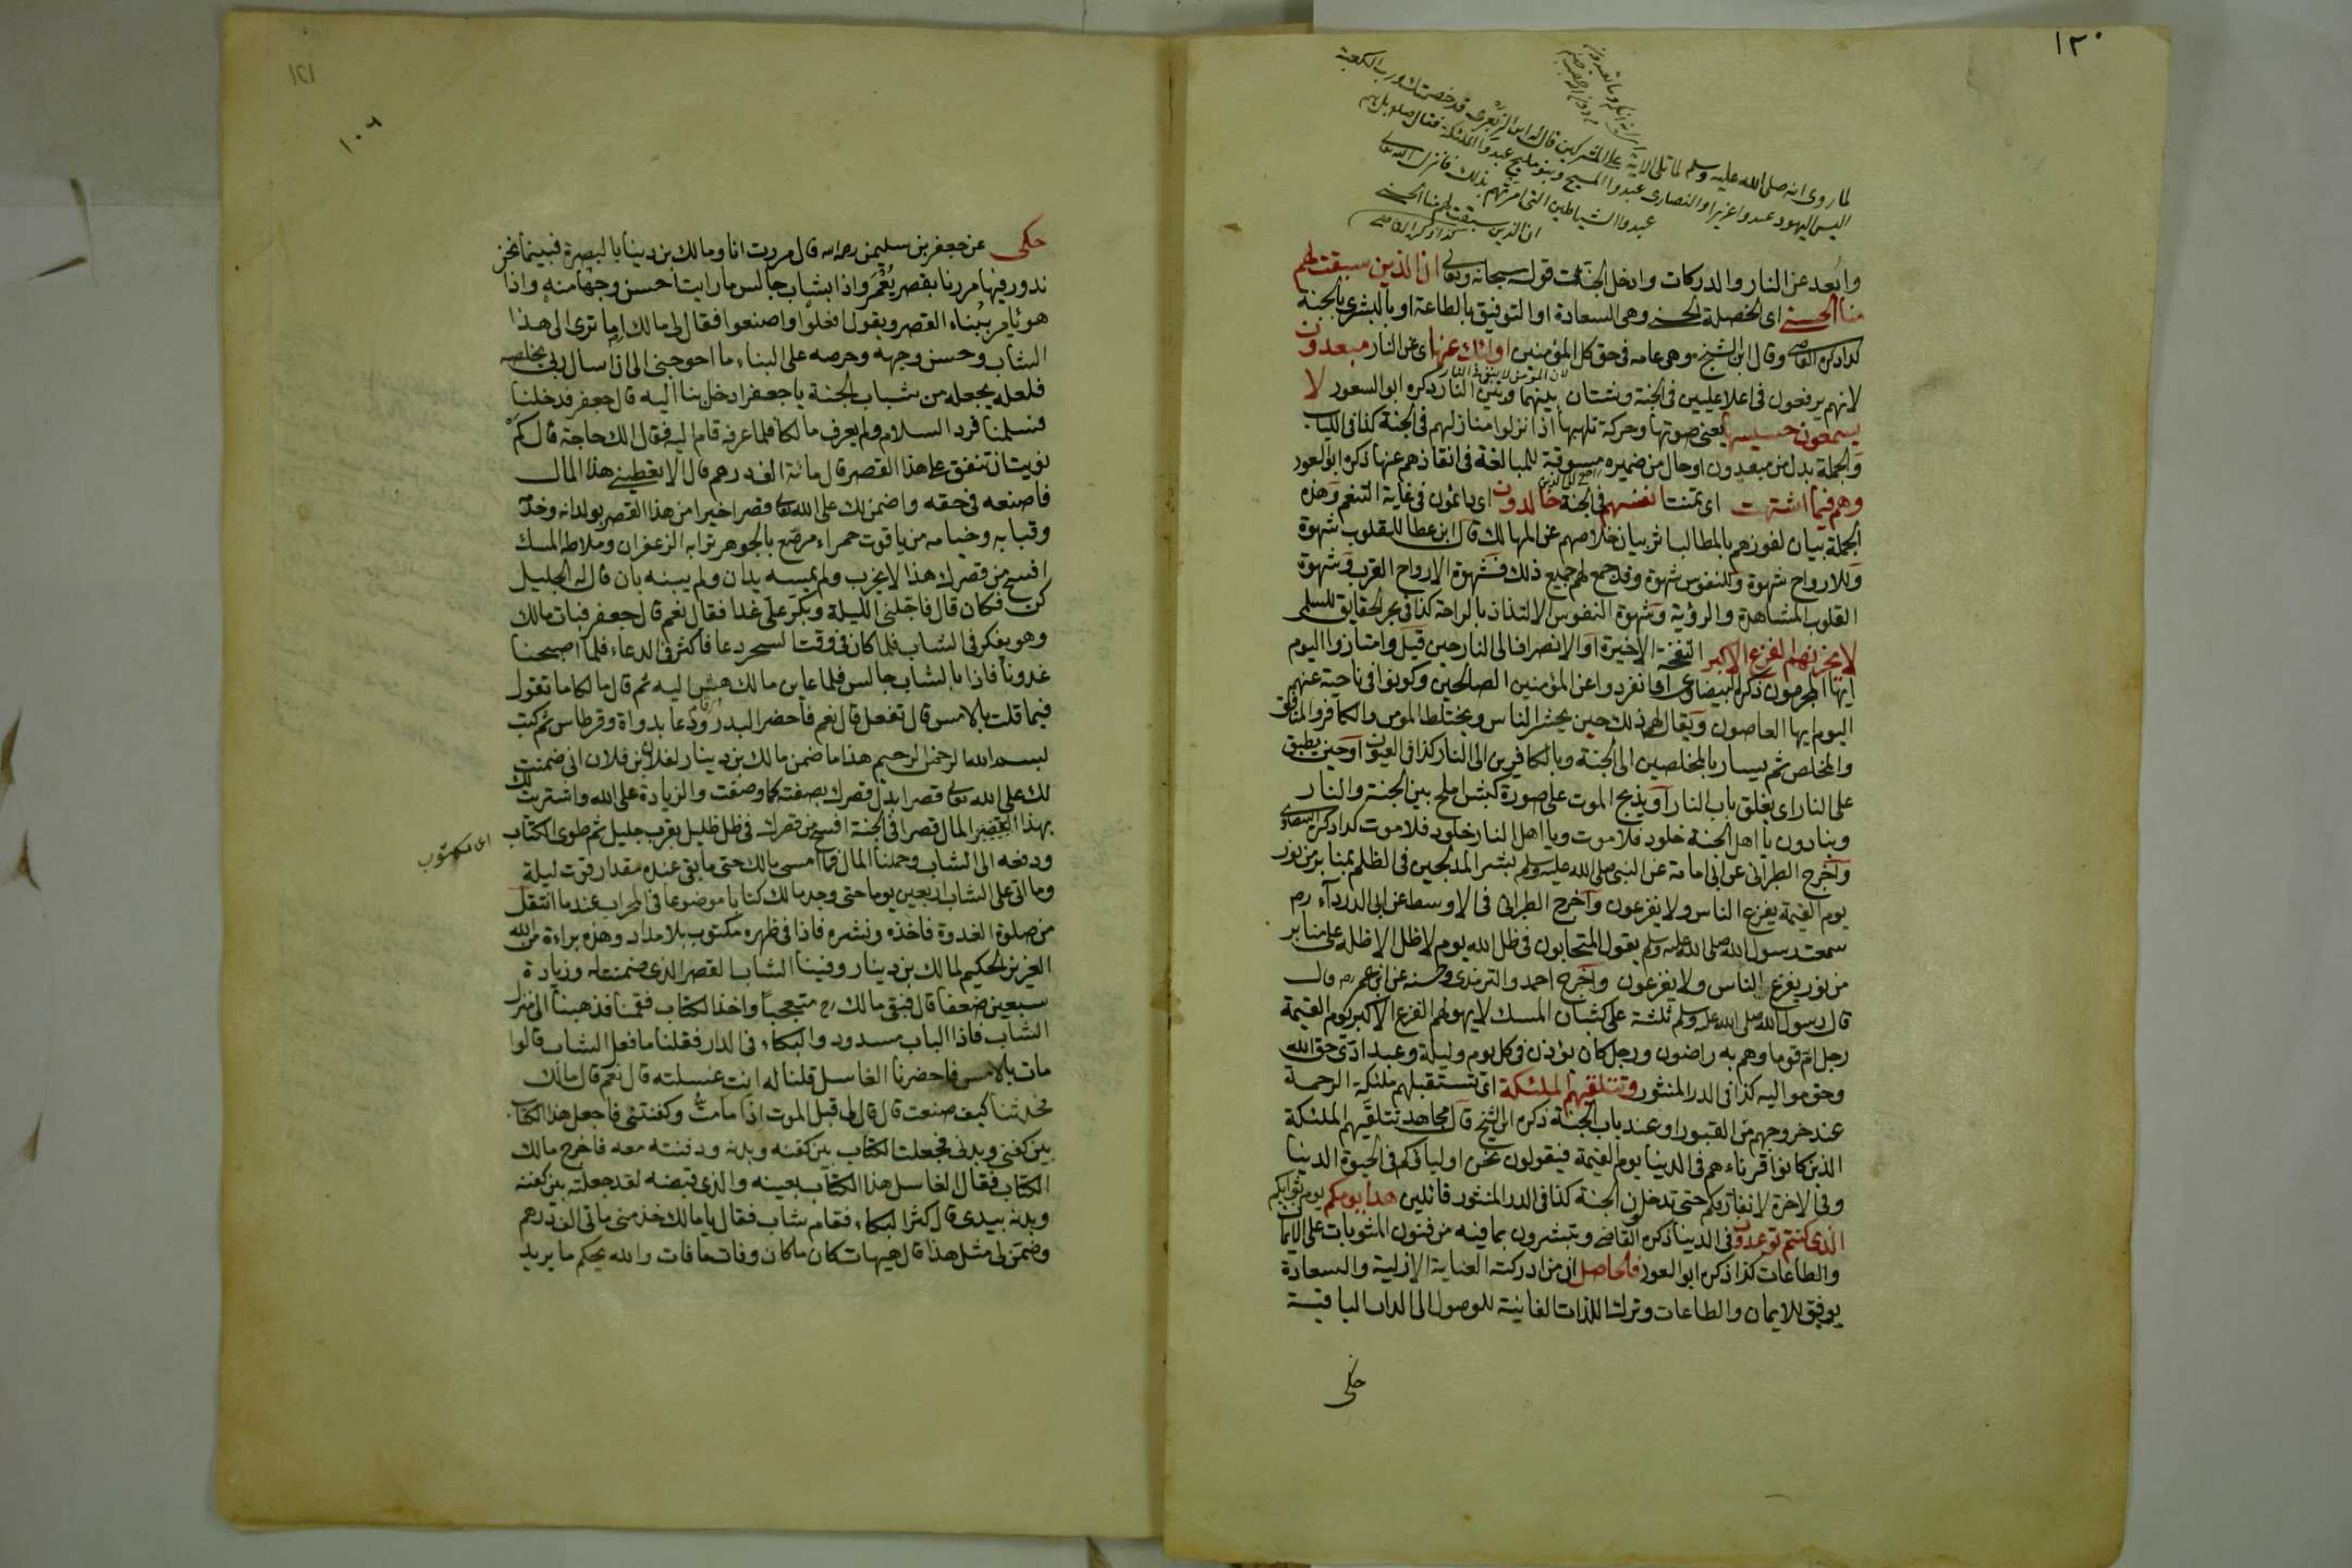 ١٢٠
لما روى انه صلى الله عليه وسلم لما تلى الاية على المشركين قال له ابن الزبعرى قد خصمتك ورب الكعبة
اليس اليهود عبدوا عزيرا والنصارى عبدوا المسيح وبنو مليح عبدوا الملئكة فقال صلعم بل هم
عبدوا الشياطين التى امرتهم بذلك فانزل الله تعالى
ان الذين سبقت لهم منا الحسنى
كذا ذكره القاضى
وابعد عن النار والدركات وادخل الجنات قوله سبحانه وتعالى ان الذين سبقت لهم
منا الحسنى اى الخصلة الحسنى وهى السعادة او التوفيق بالطاعة او بالبشرى بالجنة
كذا ذكره القاضى وقال ابن الشيخ وهى عامه فى حق كل المؤمنين اولئك عنها اى عن النار مبعدون
لان المؤمن لا يبقى فى النار
لانهم يرفعون فى اعلا عليين فى الجنة وشتان بينهما وبين النار ذكره ابو السعود لا
يسمعون حسيسها يعنى صوتها وحركة تلهبها اذا نزلوا منازلهم فى الجنة كذا فى اللباب
والجملة بدل من مبعدون او حال من ضميره مسوقة للمبالغة فى انقاذهم عنها ذكره ابو السعود
وهم فيما اشتهت اى تمنت انفسهم فى الجنة خالدون اى دائمون فى غاية التنعم وهذه
الجملة بيان لفوزهم بالمطالب اثر بيان خلاصهم عن المهالك قال ابن عطا للقلوب شهوة
وللارواح شهوة وللنفوس شهوة وقد جمع لهم جميع ذلك فشهوة الارواح القرب وشهوة
القلوب المشاهدة والرؤية وشهوة النفوس الالتذاذ بالراحة كذا فى بحر الحقايق للسلمى
لا يحزنهم الفزع الاكبر النفخة الاخيرة او الانصراف الى النار حين قيل وامتازوا اليوم
ايها المجرمون ذكره البيضاوى اى انفردوا عن المؤمنين الصالحين وكونوا فى ناحية عنهم
اليوم ايها العاصون ويقال لهم ذلك حين يحشر الناس ويختلط المؤمن والكافر والمنافق
والمخلص ثم يسار بالمخلصين الى الجنة وبالكافرين الى النار كذا فى العيون او حين يطبق
على النار اى يغلق باب النار او يذبح الموت على صورة كبش املح بين الجنة والنار
وينادون يا اهل الجنة خلود فلا موت ويا اهل النار خلود فلا موت كذا ذكره البيضاوى
واخرج الطبرانى عن ابى امامة عن النبى صلى الله عليه وسلم بشر المدلجين فى الظلم بمنابر من نور
يوم القيمة يفزع الناس ولا يفزعون واخرج الطبرانى فى الاوسط عن ابى الدرداء رضى
سمعت رسول الله صلى الله عليه وسلم يقول المتحابون فى ظل الله يوم لا ظل الا ظله على منابر
من نور يفزع الناس ولا يفزعون واخرج احمد والترمذى وحسنه عن ابن عمر رض قال
قال رسول الله صلى الله عليه وسلم ثلثة على كثبان المسك لا يهولهم الفزع الاكبر يوم القيمة
رجل ام قوما وهم به راضون ورجل كان يؤذن فى كل يوم وليلة وعبد ادى حق الله
وحق مواليه كذا فى الدر المنثور وتتلقيهم الملئكة اى تستقبلهم ملئكة الرحمة
عند خروجهم من القبور او عند باب الجنة ذكره ابن الشيخ قال مجاهد تتلقيهم الملئكة
الذين كانوا قرناءهم فى الدنيا يوم القيمة فيقولون نحن اولياؤكم فى الحيوة الدنيا
وفى الاخرة لا نفارقكم حتى تدخلون الجنة كذا فى الدر المنثور قائلين هذا يومكم يوم ثوابكم
الذى كنتم توعدون فى الدنيا ذكره القاضى وتبشرون بما فيه من فنون المثوبات على الايمان
والطاعات كذا ذكره ابو السعود فالحاصل ان من ادركته العناية الازلية والسعادة
يوفق للايمان والطاعات وترك اللذات الفانية للوصول الى الدار الباقية
حكى
١٢١
١٠٦
حكى عن جعفر بن سليمن رحمه الله قال مررت انا ومالك بن دينار بالبصرة فبينما نحن
ندور فيها مررنا بقصر يعمر واذا بشاب جالس ما رايت احسن وجها منه واذا
هو يامر ببناء القصر ويقول افعلوا واصنعوا فقال لى مالك اما ترى الى هذا
الشاب وحسن وجهه وحرصه على البناء ما احوجنى الى ان اسال ربى يخلصه
فلعله يجعله من شباب الجنة يا جعفر ادخل بنا اليه قال جعفر فدخلنا
فسلمنا فرد السلام ولم يعرف مالكا فلما عرفه قام اليه فقال الك حاجة قال كم
نويت ان تنفق على هذا القصر قال مائة الف درهم قال الا تعطينى هذا المال
فاصنعه فى حقه واضمن لك على الله تعالى قصرا خيرا من هذا القصر بولدانه وخدمه
وقبابه وخيامه من ياقوت حمراء مرصع بالجوهر ترابه الزعفران وملاطه المسك
افسح من قصرك هذا لا يخرب ولم يمسه يدان ولم يبنه بان قال له الجليل
كن فكان قال فاجلنى الليلة وبكر على غدا فقال نعم قال جعفر فبات مالك
وهو يفكر فى الشاب فلما كان فى وقت السحر دعا فاكثر فى الدعاء فلما اصبحنا
غدونا فاذا بالشاب جالس فلما عاين مالك هش اليه ثم قال مالكا ما تقول
فيما قلت بالامس قال تفعل قال نعم فاحضر البدر ودعا بدواة وقرطاس ثم كتب
بسم الله الرحمن الرحيم هذا ما ضمن مالك بن دينار لفلان بن فلان انى ضمنت
لك على الله تعالى قصرا بدل قصرك بصفته كما وصفت والزيادة على الله واشتريت لك
بهذا المال قصرا فى الجنة افسح من قصرك فى ظل ظليل بقرب جليل ثم طوى الكتاب
اى مكتوب
ودفعه الى الشاب وحملنا المال فما امسى مالك حتى ما بقى عنده مقدار قوت ليلة
وما اتى على الشاب اربعين يوما حتى وجد مالك كتابا موضوعا فى المحراب عندما انتقل
من صلوة الغدوة فاخذه ونشره فاذا فى ظهره مكتوب بلا مداد وهذه براءة من الله
العزيز الحكيم لمالك بن دينار وفينا الشاب القصر الذى ضمنت له وزيادة
سبعين ضعفا قال فبقى مالك رح متعجبا واخذ الكتاب فقمنا فذهبنا الى منزل
الشاب فاذا الباب مسدود والبكاء فى الدار فقلنا ما فعل الشاب قالوا
مات بالامس فاحضرنا الغاسل قلنا له انت غسلته قال نعم قال مالك
فحدثنا كيف صنعت قال قال لى قبل الموت اذا ما مت وكفنتنى فاجعل هذا الكتاب
بين كفنى وبدنى فجعلت الكتاب بين كفنه وبدنه ودفنته معه فاخرج مالك
الكتاب فقال الغاسل هذا الكتاب بعينه والذى قبضه لقد جعلته بين كفنه
وبدنه بيدى قال كثر البكاء فقام شاب فقال يا مالك خذ منى مائتى الف درهم
وضمن لى مثل هذا قال هيهات كان ما كان وفات ما فات والله يحكم ما يريد